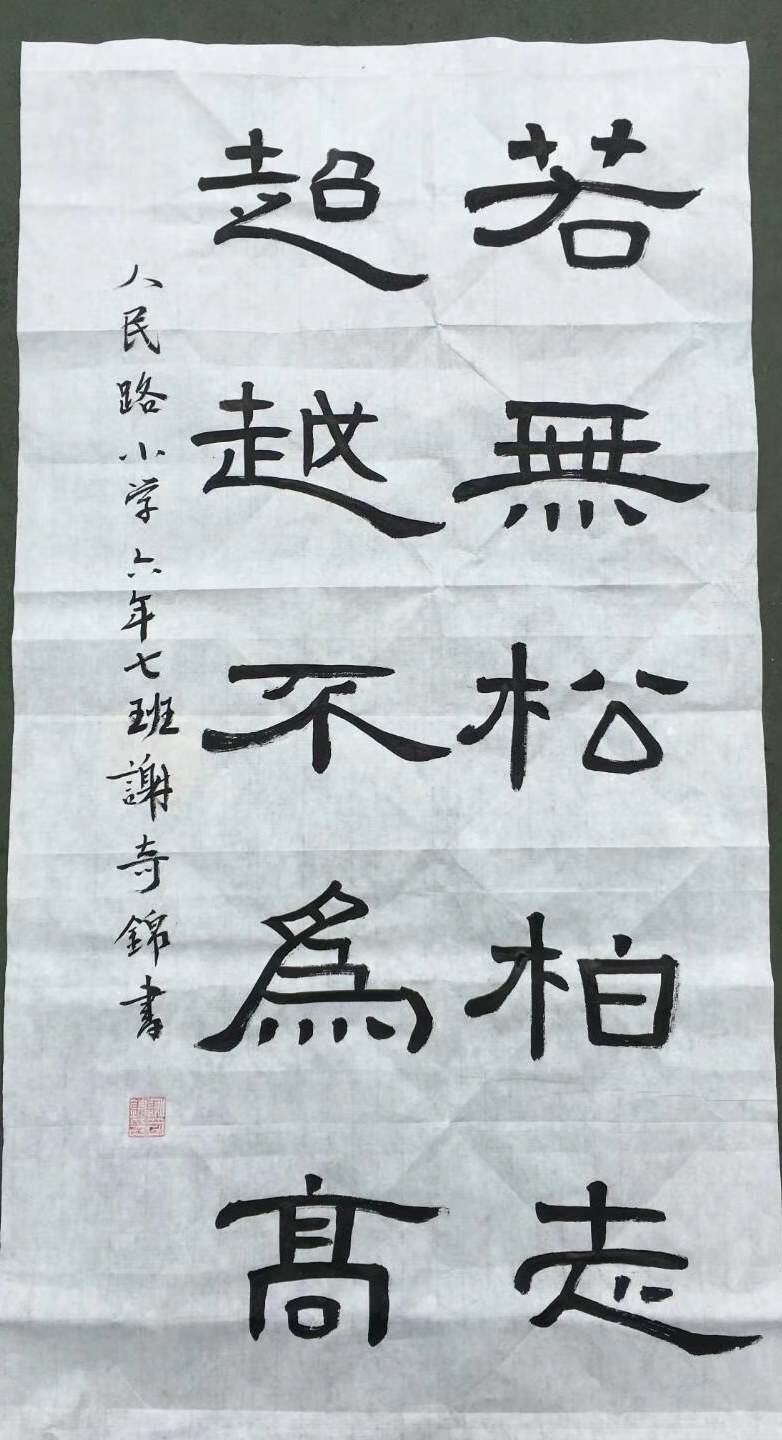 若無松柏志
超越不為高
人民路小学六年七班謝奇錦書